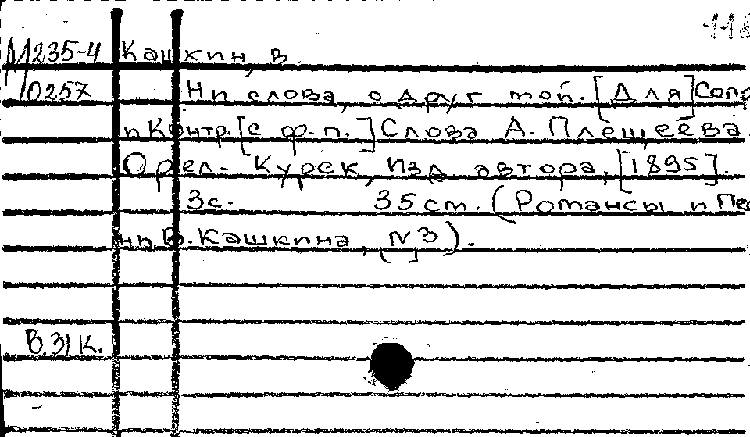 118
М 235-4 Кашкин, В
10257 Ни слова, о друг мой. [Для] Сопр
и Контр. [с ф.-п.] Слова А. Плещеева
Орел - Курск, Изд автора, [1895].
3с. 35 см. (Романсы и Пес
ни В. Кашкина, N 3).
В.31 К.